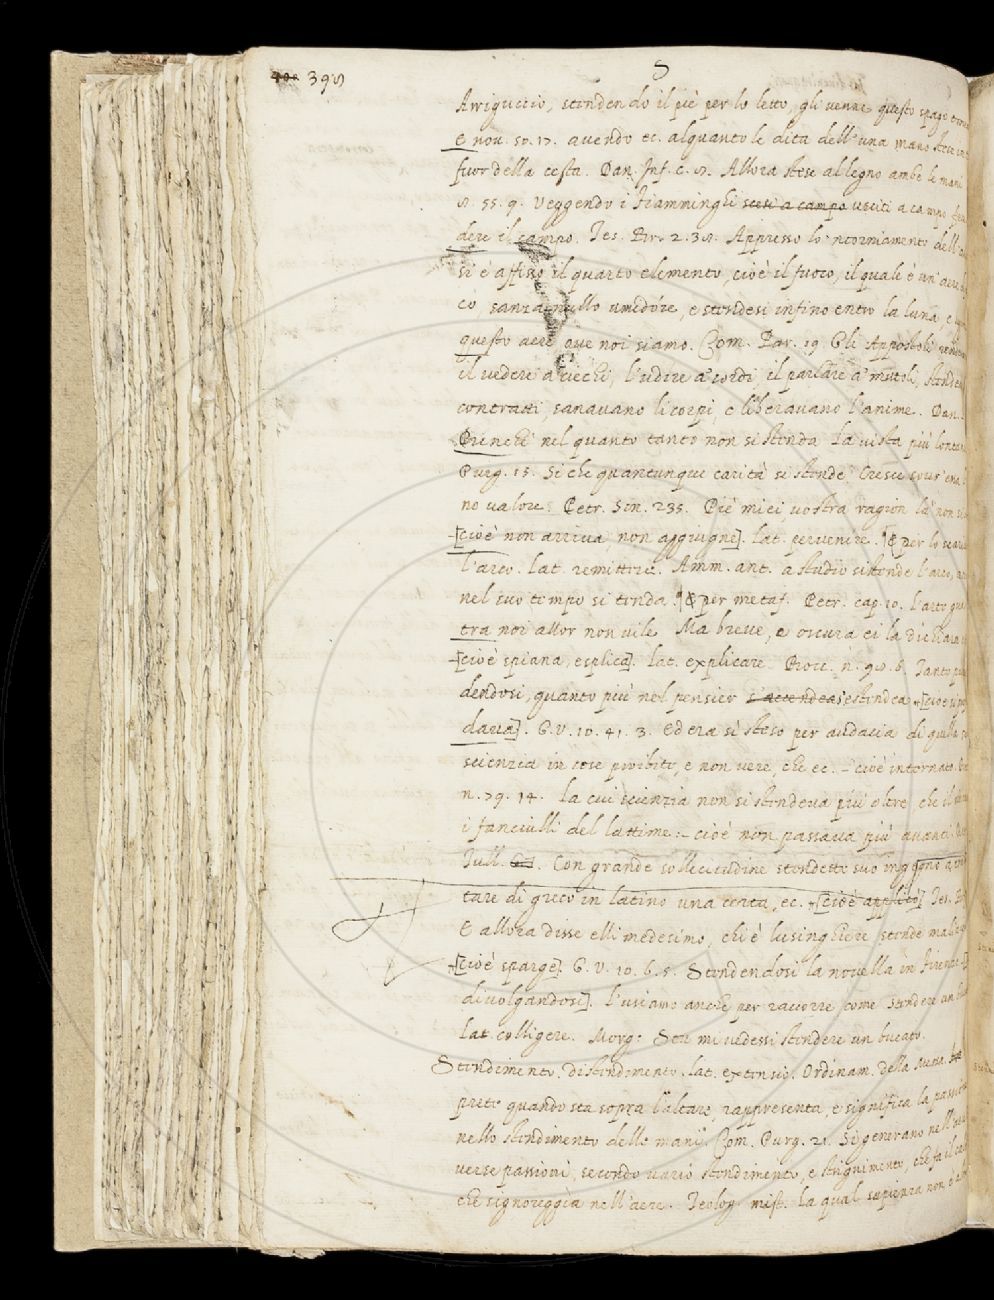 400 398
S
Arriguccio, stendendo il piè per lo letto, gli venne questo spago
E nou. 50. 17. avendo ec. alquanto le dita dell'una mano stese in
fuor della cesta. Dan. Inf. c. 8. Allora stese al legno ambe le mani
8. 55. 9. Veggendo i Fiamminghi scesi a campo usciti a campo
dere il campo. Tes. Br. 2. 38. Appresso lo 'ntorniamento dell'
si è assiso il quarto elemento, cioè il fuoco, il quale è un' aere
co, sanza nullo umidore, e stendesi infino entro la luna, e
questo aere, ove noi siamo. Com. Par. 19 Gli Appostoli
il vedere a' ciechi, l'udire a' sordi, il parlare a' mutoli,
contratti, sanavano li corpi, e liberavano l'anime. Dan.
Purchè nel quanto tanto non si stenda La vista più lontan
Purg. 15. Si che quantunque carità si stende, Cresce sour' essa
no valore. Petr. Son. 235. Piè miei, vostra ragion là non si
[cioè non arriva, non aggiugne]. lat. pervenire. ¶ E per lo
l'arco. lat. remittere. Amm. ant. a studio si stende l'arco,
nel suo tempo si tenda. ¶ E per metaf. Petr. cap. 10. l'arco
tra noi allor non vile Ma breve, e oscura ei la dichiara
[cioè spiana, esplica]. lat. explicare. Bocc. n. 98. 6. Tanto
dendosi, quanto più nel pensier s'accendea s'estendea [cioè
dava]. G. V. 10. 41. 3. Ed era sì steso per audacia di quella
scienzia in cose proibite, e non vere, che ec. - cioè internato.
n. 79. 14. La cui scienzia non si stendeva più oltre che il
i fanciulli del lattime: - cioè non passava più avanti.
Tull. Con grande sollecitudine stendette suo ingegno a
tare di greco in latino una certa, ec. [cioè applicò] Tes.
E allora disse elli medesimo, chi è lusinghiere stende
[cioè sparge]. G. V. 10. 6. 5. Stendendosi la novella in Firenze
divolgandosi]. l'usiamo anche per raccorre, come stendere un
lat. colligere. Morg: Ser mi vedessi stendere un bucato.
Stendimento. distendimento. lat. extensio. Ordinam. della Messa.
prete quando sta sopra l'altare rappresenta, e significa la passi
nello stendimento delle mani. Com. Purg. 21. Si generano nell'
verse passioni, secondo vario stendimento, e strignimento, che fa il
che signoreggia nell'aere. Teolog. mist. La qual sapienza non è